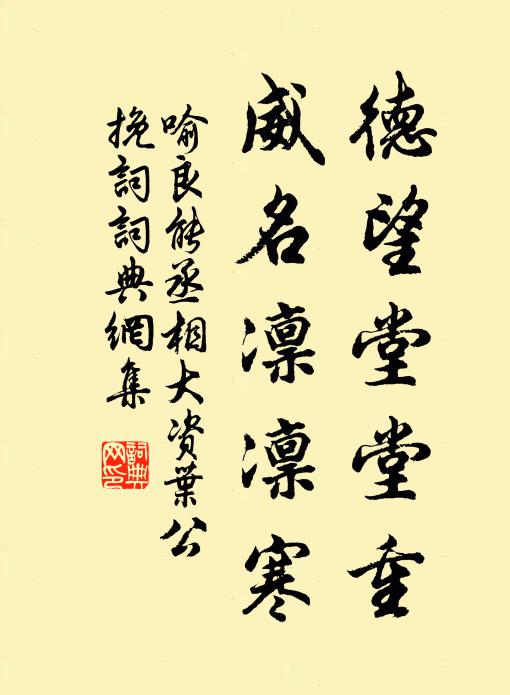 德望堂堂重
威名凛凛寒
喻良能丞相大资葉公
挽詞詞典網集
詞典
网印